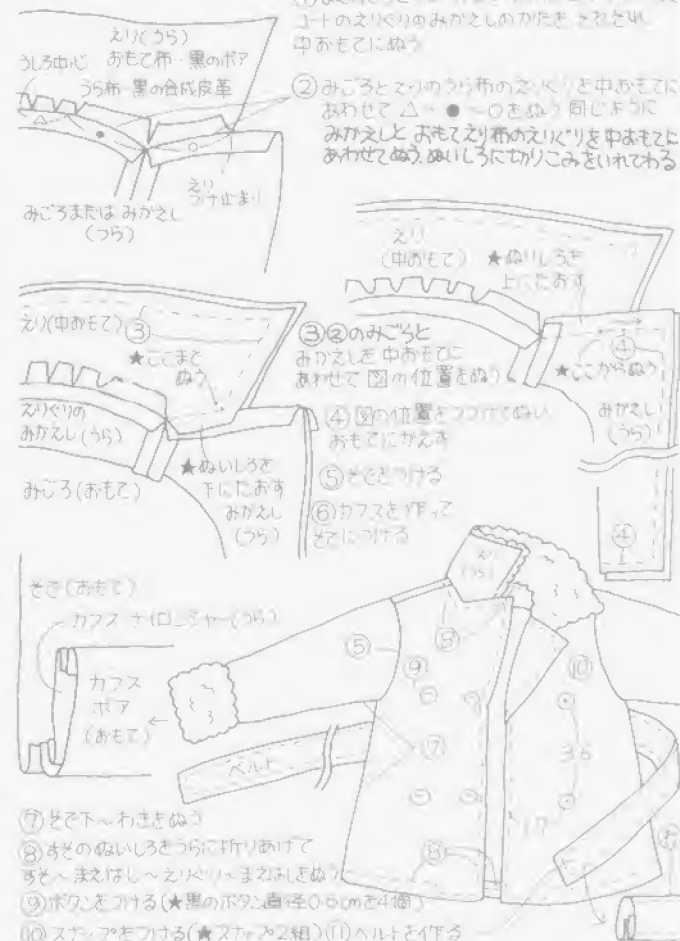 コートのえりぐりのみかえしのかたを それぞれ
中おもてにぬう
えり(うら)
おもて布・黒のボア
うら布・黒の合成皮革
うしろ中心
えり
つけ止まり
みごろまたは みかえし
(うら)
②みごろとえりのうら布のえりぐりを中おもてに
あわせて △~●~○をぬう 同じように
みかえしと おもてえり布のえりぐりを中おもてに
あわせてぬう、ぬいしろに切りこみをいれてわる
えり
(中おもて)
★ぬりしろを
上にたおす
④
★ここからぬう
みかえし
(うら)
④
えり(中おもて)
③
★ここまで
ぬう
えりぐりの
みかえし(うら)
みごろ(おもて)
★ぬいしろを
下にたおす
みかえし
(うら)
③②のみごろと
みかえしを 中おもてに
あわせて 図の位置をぬう
④図の位置をつづけてぬい
おもてにかえす
⑤そでをつける
⑥カフスを作って
そでにつける
そで(おもて)
カフス ナイロンシャー(うら)
カフス
ボア
(おもて)
えり
(うら)
⑧
⑤
⑨
⑩
⑦
3.6
1.7
⑧
ベルト
⑦そで下~わきをぬう
⑧すそのぬいしろをうらに折りあげて
すそ~まえはし~えりぐり~まえはしをぬう
⑨ボタンをつける(★黒のボタン直径0.6cmを4個)
⑩スナップをつける(★スナップ2組)⑪ベルトを作る